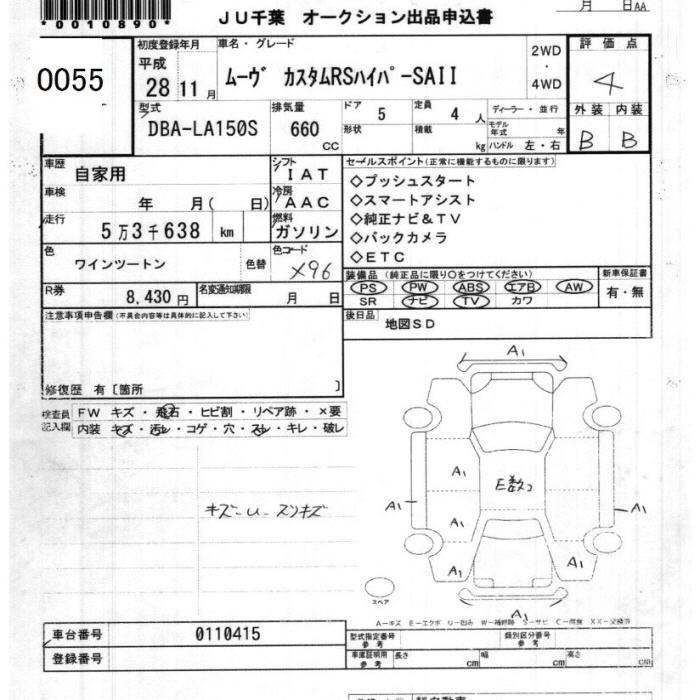 *0010890*
JU千葉 オークション出品申込書
月 日AA
0055
初度登録年月
平成
28年11月
車名・グレード
ムーヴ カスタムRSハイパーSAII
2WD
・
4WD
評価点
4
型式
DBA-LA150S
排気量
660
cc
ドア 5
定員 4 人
ディーラー・並行
形状
積載 kg
モデル年式 年
ハンドル 左・右
外装 内装
B B
車歴 自家用
シフト IAT
車検 年 月( 日)
冷房 AAC
走行 5万3千638 km
燃料 ガソリン
色 ワインツートン 色替
色コード X96
R券 8,430円
名変通知期限 月 日
セールスポイント(正常に機能するものに限ります)
◇プッシュスタート
◇スマートアシスト
◇純正ナビ&TV
◇バックカメラ
◇ETC
装備品(純正品に限り○をつけてください)
PS PW ABS エアB AW
SR ナビ TV カワ
新車保証書
有・無
後日品 地図SD
注意事項申告欄(不具合内容等は具体的に記入して下さい)
修復歴 有〔箇所 〕
検査員記入欄
FW キズ・飛石・ヒビ割・リペア跡・×要
内装 キズ・汚レ・コゲ・穴・スレ・キレ・破レ
キズ-U- スリキズ
A1
A1
E数コ
A1
A1
A1
A1
A1
A1
スペア
A1
A-キズ E-エクボ U-凹み W-補修跡 S-サビ C-腐食 XX-交換済
車台番号 0110415
登録番号
型式指定番号 参考
類別区分番号 参考
車庫証明用 参考
長さ cm
幅 cm
高さ cm
軽自動車